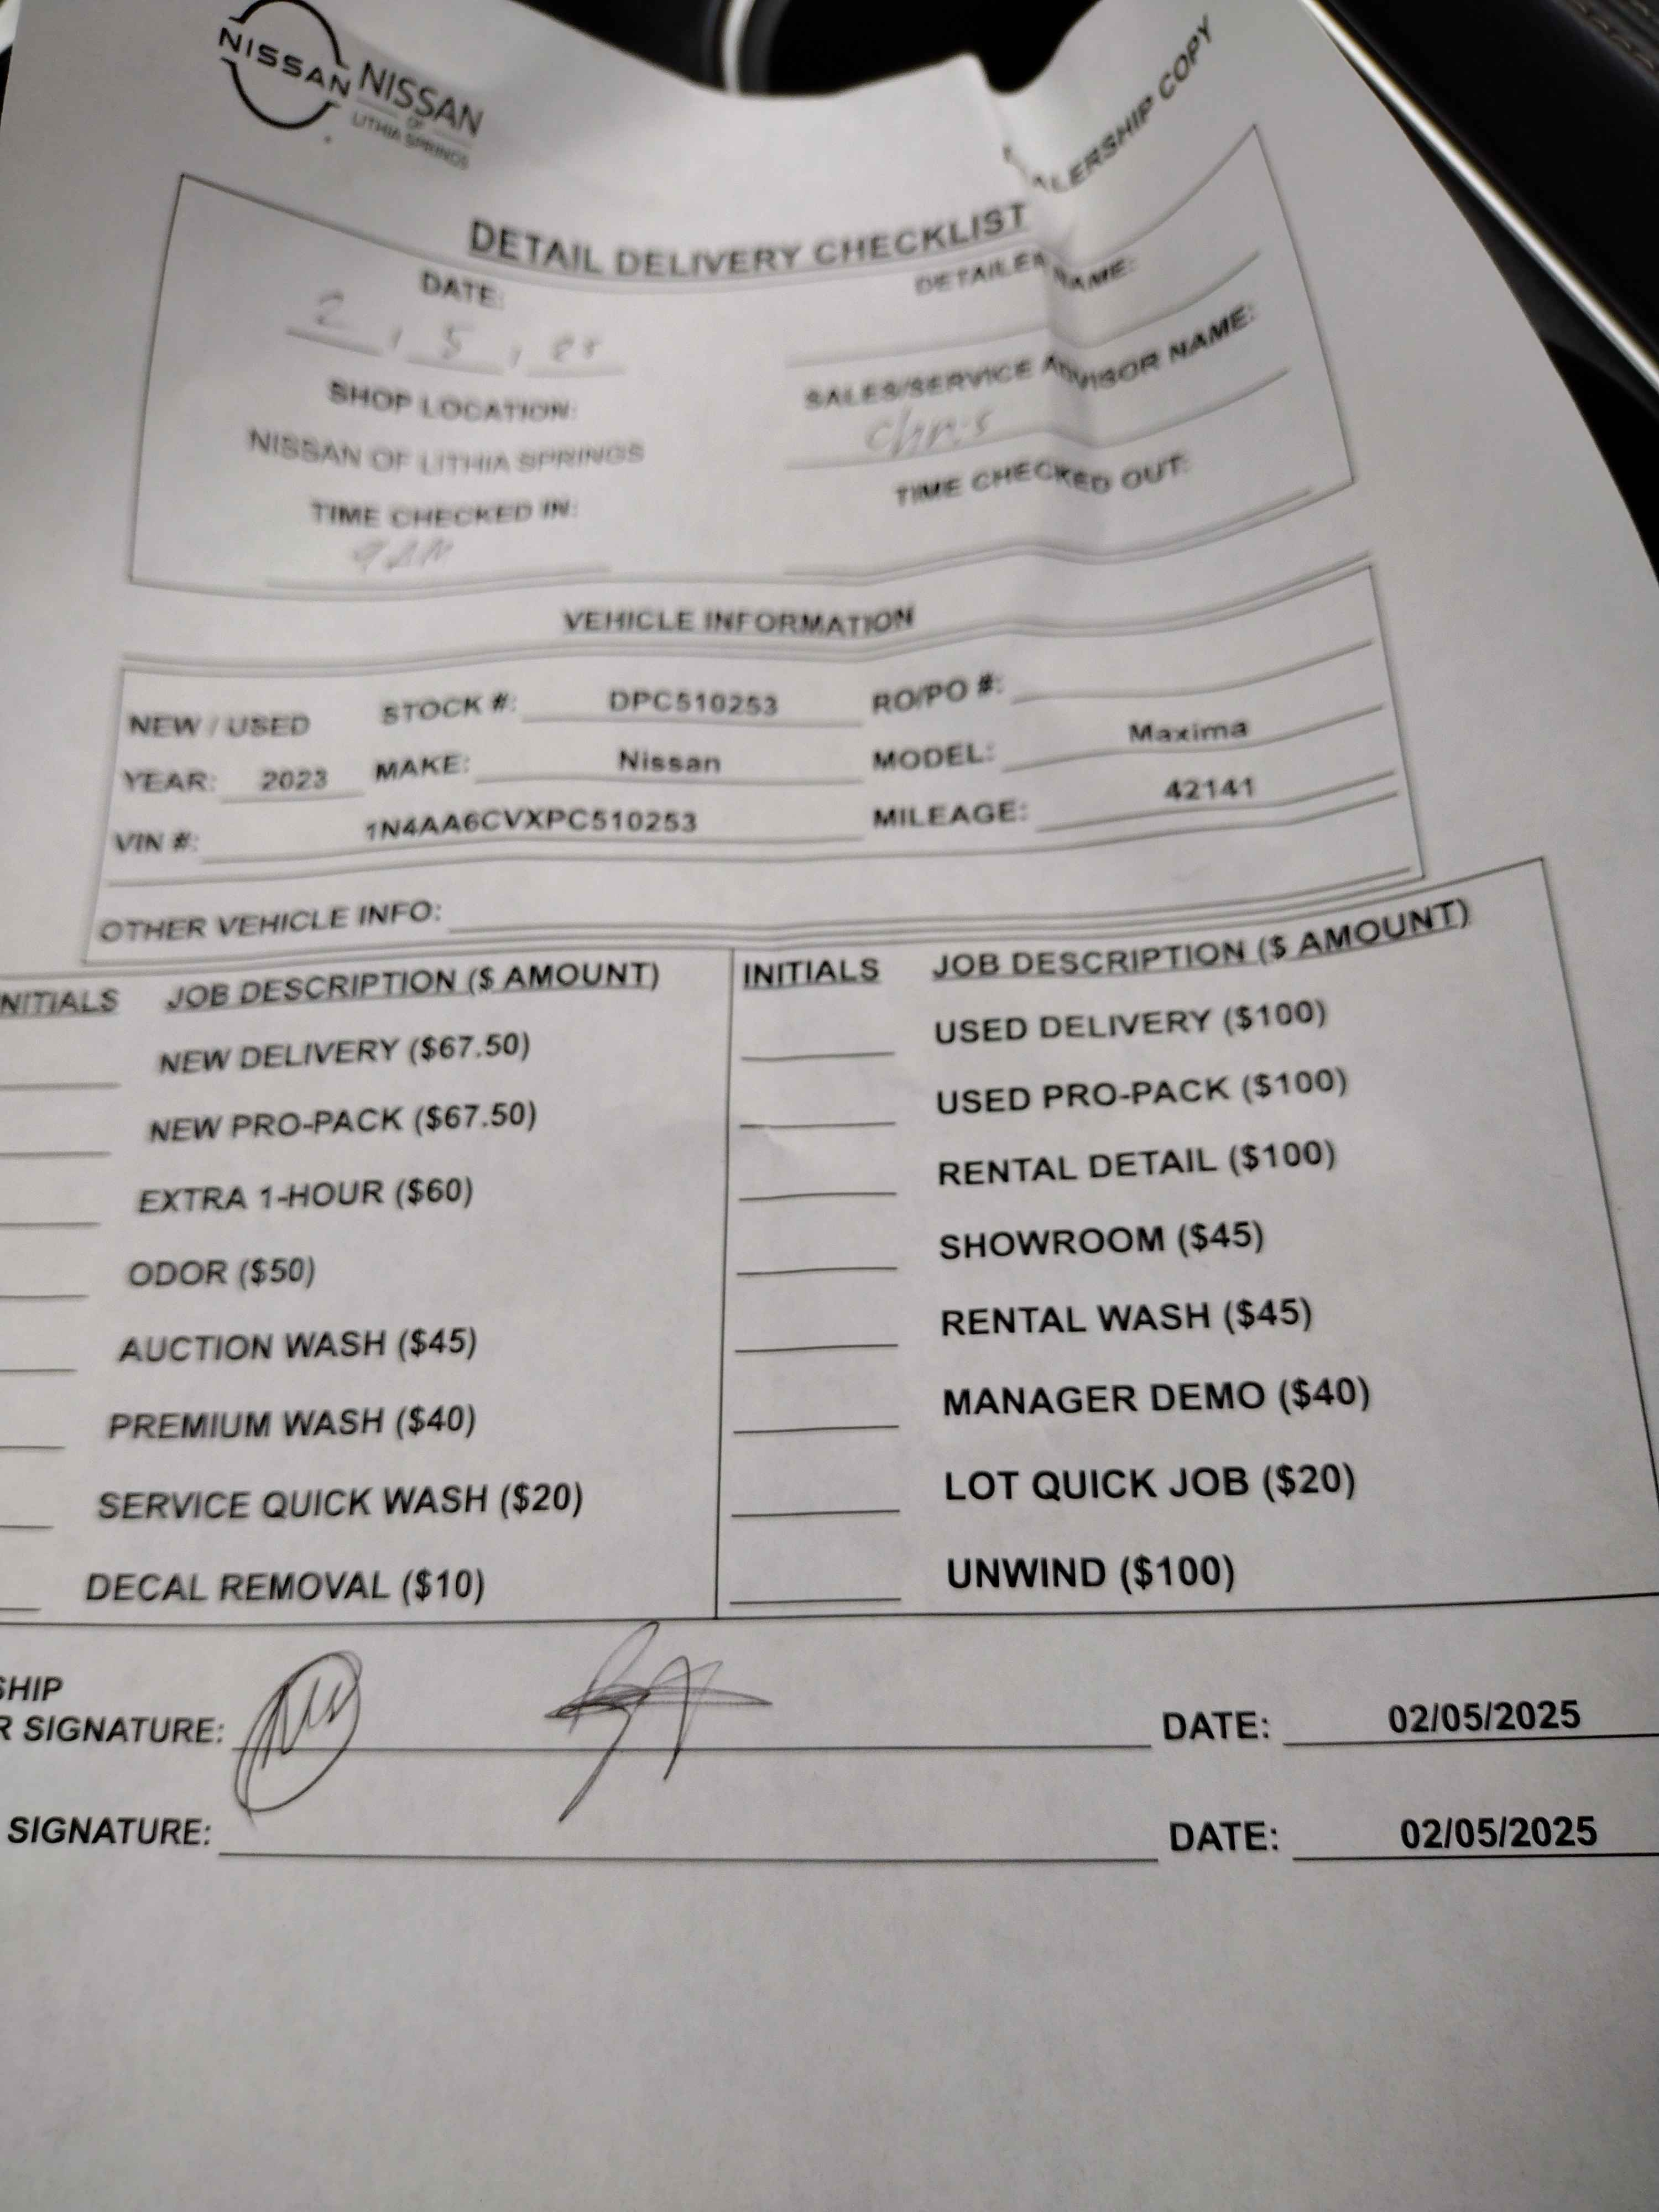 NISSAN
NISSAN
OF
LITHIA SPRINGS
ALERSHIP COPY
DETAIL DELIVERY CHECKLIST
DATE: DETAILER NAME:
2, 5, 25
SHOP LOCATION: SALES/SERVICE ADVISOR NAME:
NISSAN OF LITHIA SPRINGS Chris
TIME CHECKED IN: TIME CHECKED OUT:
9AM
VEHICLE INFORMATION
NEW / USED STOCK #: DPC510253 RO/PO #:
YEAR: 2023 MAKE: Nissan MODEL: Maxima
VIN #: 1N4AA6CVXPC510253 MILEAGE: 42141
OTHER VEHICLE INFO:
NITIALS JOB DESCRIPTION ($ AMOUNT) INITIALS JOB DESCRIPTION ($ AMOUNT)
NEW DELIVERY ($67.50) USED DELIVERY ($100)
NEW PRO-PACK ($67.50) USED PRO-PACK ($100)
EXTRA 1-HOUR ($60) RENTAL DETAIL ($100)
ODOR ($50) SHOWROOM ($45)
AUCTION WASH ($45) RENTAL WASH ($45)
PREMIUM WASH ($40) MANAGER DEMO ($40)
SERVICE QUICK WASH ($20) LOT QUICK JOB ($20)
DECAL REMOVAL ($10) UNWIND ($100)
SHIP
R SIGNATURE: DATE: 02/05/2025
SIGNATURE: DATE: 02/05/2025